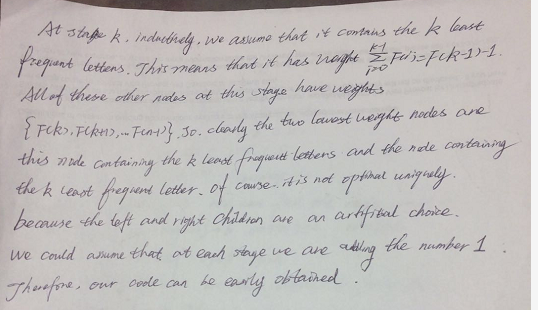 At stage k, inductively, we assume that it contains the k least
frequent letters. This means that it has weight \sum_{i=0}^{k-1} F(i) = F(k-1)-1.
All of these other nodes at this stage have weights
{F(k), F(k+1), ... F(n-1)}. So. clearly the two lowest weight nodes are
this node containing the k least frequent letters and the node containing
the k least frequent letter. Of course. it is not optimal uniquely.
because the left and right children are an artifital choice.
We could assume that at each stage we are adding the number 1.
Therefore, our code can be easily obtained.